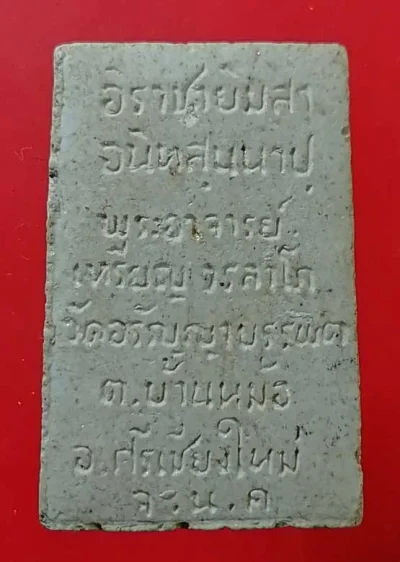 อิราชายิมสา
จนิทสุนนาปุ
พระอาจารย์
เหรียญ วรลาโภ
วัดอรัญญาบรรพต
ต.บ้านหม้อ
อ.ศรีเชียงใหม่
จ.น.ค